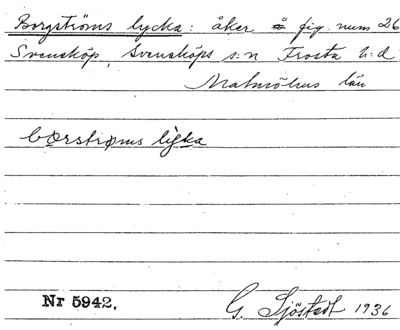 Borgströms lycka: åker å fig num 26
Svensköp, Svensköps s:n Frosta h:d
Malmöhus län
borstrøms lyka
Nr 5942.
G. Sjöstedt 1936